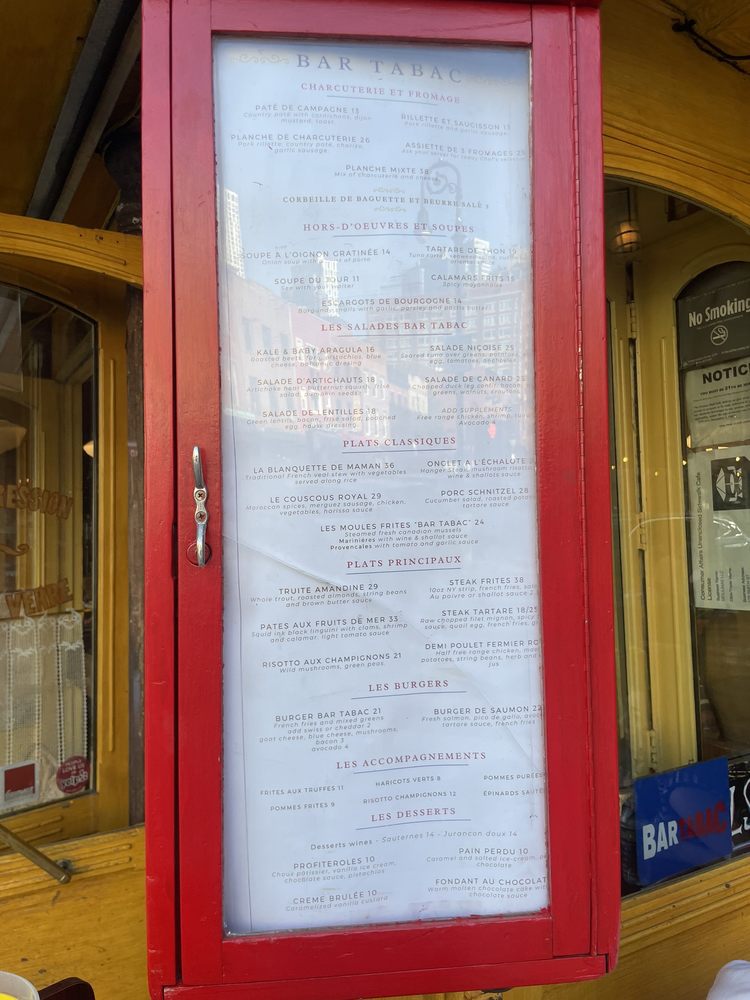 BAR TABAC
CHARCUTERIE ET FROMAGE
PATÉ DE CAMPAGNE 13
Country paté with cornichons, dijon
mustard, toast
RILLETTE ET SAUCISSON 13
Pork rillette and garlic sausage
PLANCHE DE CHARCUTERIE 26
Pork rillette, country paté, chorizo,
garlic sausage
ASSIETTE DE 3 FROMAGES
Ask your server for today
PLANCHE MIXTE 38
Mix of charcuterie and cheese
CORBEILLE DE BAGUETTE ET BEURRE SALÉ 3
HORS-D'OEUVRES ET SOUPES
SOUPE A L'OIGNON GRATINÉE 14
Onion soup with
TARTARE DE THON 19
SOUPE DU JOUR 11
See with your waiter
CALAMARS FRITS
Spicy mayonnaise
ESCARGOTS DE BOURGOGNE 14
Burgundy snails with garlic, parsley and pastis butter
LES SALADES BAR TABAC
KALE & BABY ARAGULA 16
Roasted beets, pistachios, blue
cheese, dressing
SALADE NIÇOISE 25
Seared tuna over greens, potatoes,
egg, tomatoes, anchovies
SALADE D'ARTICHAUTS 18
Artichoke heart, butternut squash, frisé
salad, pumpkin seeds
SALADE DE CANARD
Chopped duck leg confit, bacon,
greens, walnuts, croutons
SALADE DE LENTILLES 18
Green lentils, bacon, frisé salad, poached
egg, house dressing
ADD SUPPLEMENTS
Free range chicken, shrimp,
Avocado 4
PLATS CLASSIQUES
LA BLANQUETTE DE MAMAN 36
Traditional French veal stew with vegetables
served along rice
ONGLET A L'ÉCHALOTE
Hanger Steak, mushroom
wine & shallots sauce
LE COUSCOUS ROYAL 29
Moroccan spices, merguez sausage, chicken,
vegetables, harissa sauce
PORC SCHNITZEL 28
Cucumber salad, roasted
tartare sauce
LES MOULES FRITES "BAR TABAC" 24
Steamed fresh canadian mussels
Marinières with wine & shallot sauce
Provencales with tomato and garlic sauce
PLATS PRINCIPAUX
TRUITE AMANDINE 29
Whole trout, roasted almonds, string beans
and brown butter sauce
STEAK FRITES 38
10oz NY strip, french fries,
Au poivre or shallot sauce
PATES AUX FRUITS DE MER 33
Squid ink black linguini with clams, shrimp
and calamar, light tomato sauce
STEAK TARTARE 18/25
Raw chopped filet mignon, spicy
sauce, quail egg, french fries,
RISOTTO AUX CHAMPIGNONS 21
Wild mushrooms, green peas.
DEMI POULET FERMIER
Half free range chicken,
potatoes, string beans, herb and
jus
LES BURGERS
BURGER BAR TABAC 21
French fries and mixed greens
add swiss or cheddar 2
goat cheese, blue cheese, mushrooms,
bacon 3
avocado 4
BURGER DE SAUMON 22
Fresh salmon, pico de gallo,
tartare sauce, french fries
LES ACCOMPAGNEMENTS
FRITES AUX TRUFFES 11
HARICOTS VERTS 8
POMMES PURÉES
POMMES FRITES 9
RISOTTO CHAMPIGNONS 12
ÉPINARDS
LES DESSERTS
Desserts wines - Sauternes 14 - Jurancon doux 14
PROFITEROLES 10
Choux patissier, vanilla ice cream,
chocolate sauce, pistachios
PAIN PERDU 10
Caramel and salted ice-cream,
chocolate
CREME BRULÉE 10
Caramelized vanilla custard
FONDANT AU CHOCOLAT
Warm molten chocolate cake with
chocolate sauce
No Smoking
NOTIC
BAR TABAC